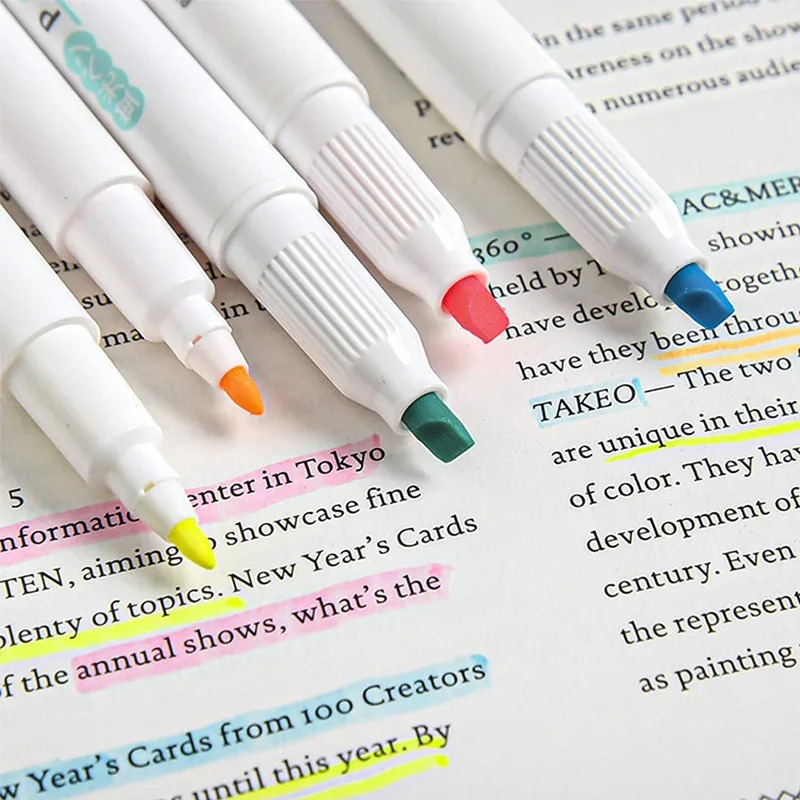 蛍光ペン P
in the same period
areness on the show
numerous audie
rev
5
nformatio enter in Tokyo
TEN, aiming to showcase fine
plenty of topics. New Year's Cards
of the annual shows, what's the
w Year's Cards from 100 Creators
s until this year. By
360° — AC&MER
held by T showin
have develo togeth
have they been throu
TAKEO — The two
are unique in their
of color. They hav
development of
century. Even
the represent
as painting